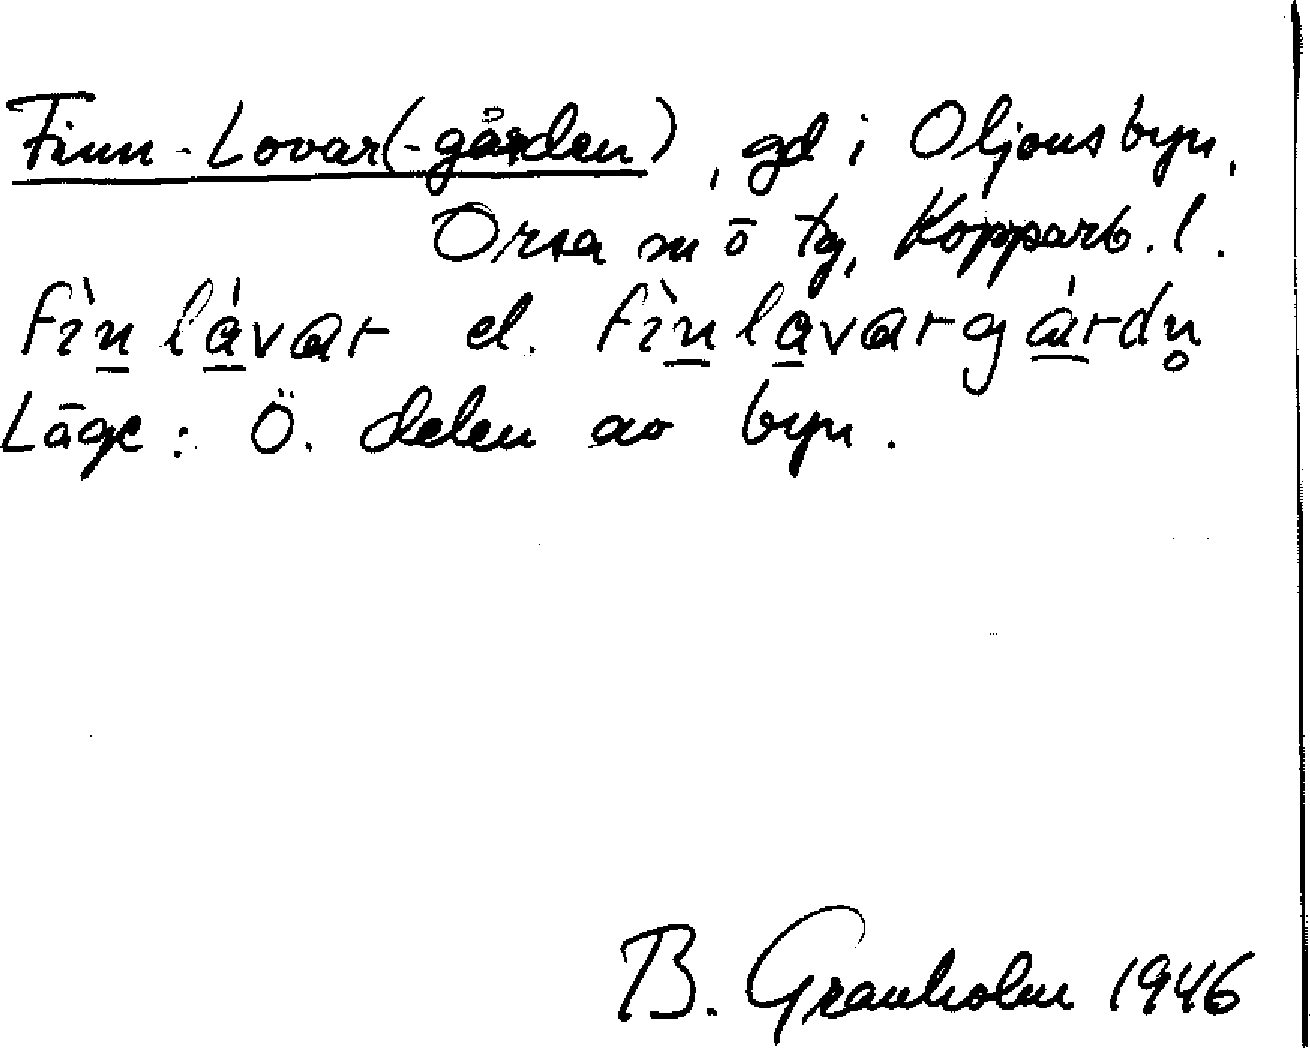 Finn-Lovar(-gården), gd i Oljonsbyn,
Orsa sn o tg, Kopparb. l.
fìn lávar el. fìn lavar gárdn̥
Läge: Ö. delen av byn.
B. Granholm 1946